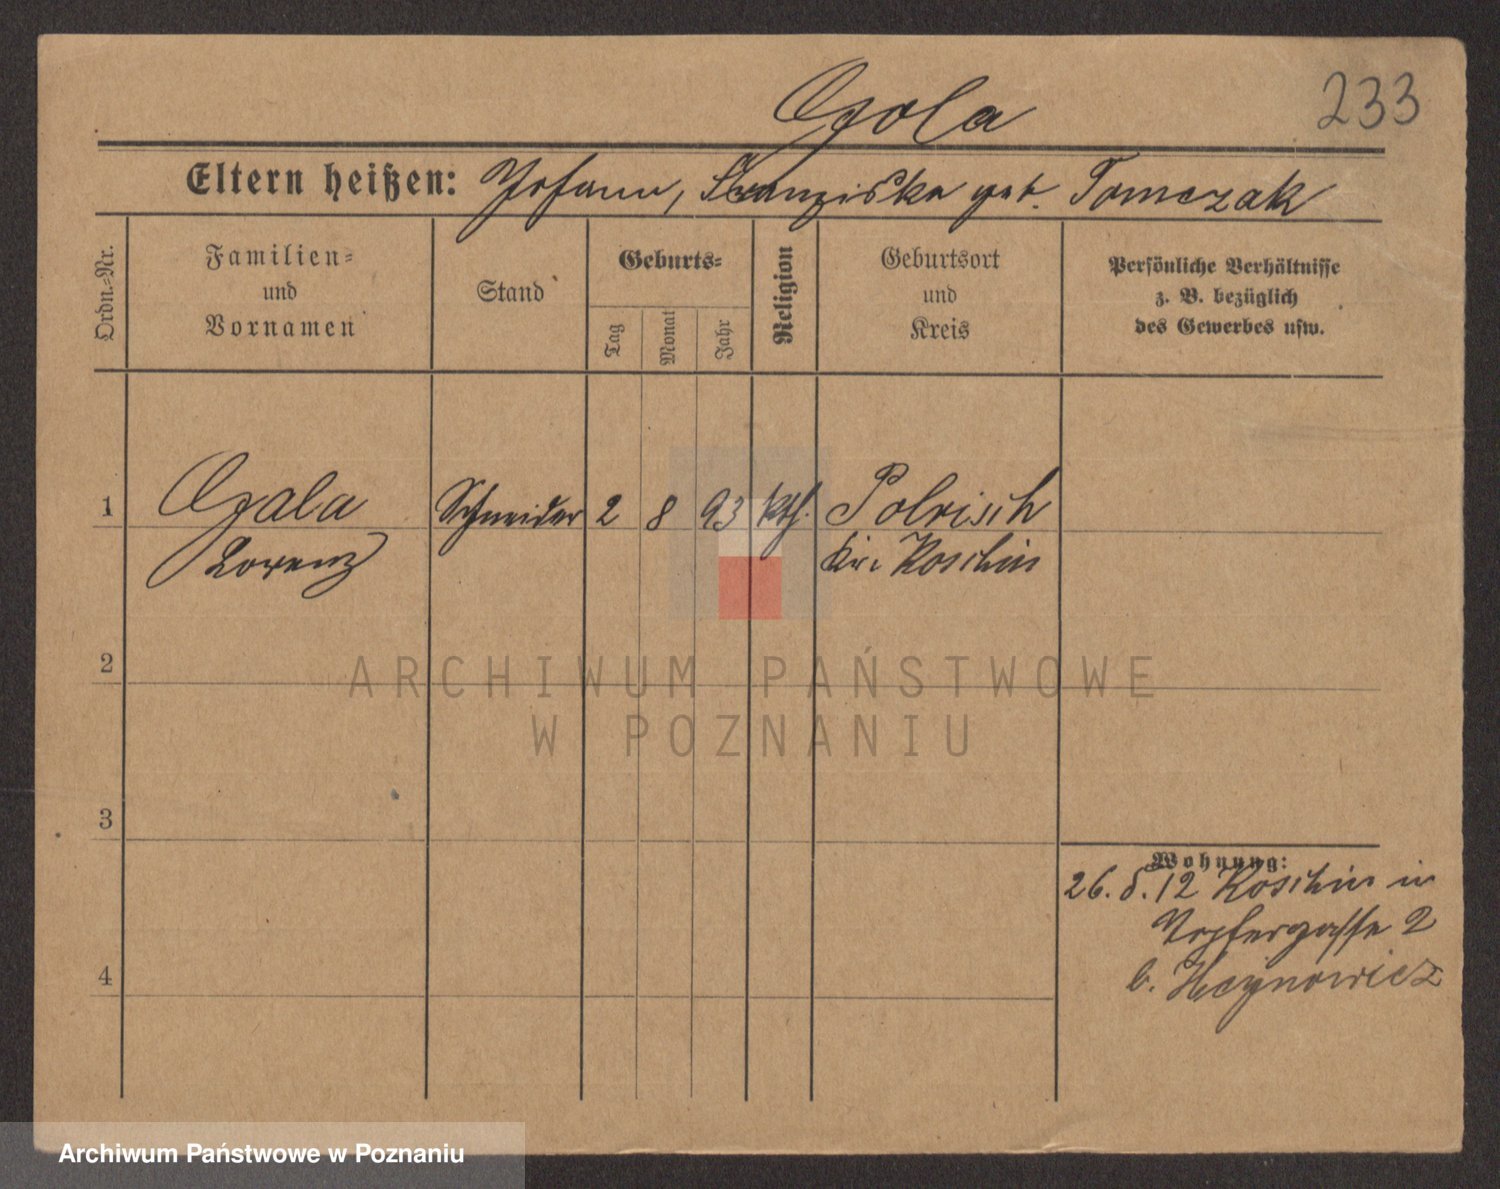 Gola
233
Eltern heißen: Johann, Franziska geb. Tomczak
Ordn.-Nr.
Familien-
und
Vornamen
Stand
Geburts-
Tag
Monat
Jahr
Religion
Geburtsort
und
Kreis
Persönliche Verhältnisse
z. B. bezüglich
des Gewerbes usw.
1 Gala Schneider 2 8 93 kth. Polrisch
Lorenz Kr. Koschin
2
3
4
Wohnung:
26. 8. 12 Koschin in
2
b. Heynowicz
ARCHIWUM PAŃSTWOWE
W POZNANIU
Archiwum Państwowe w Poznaniu